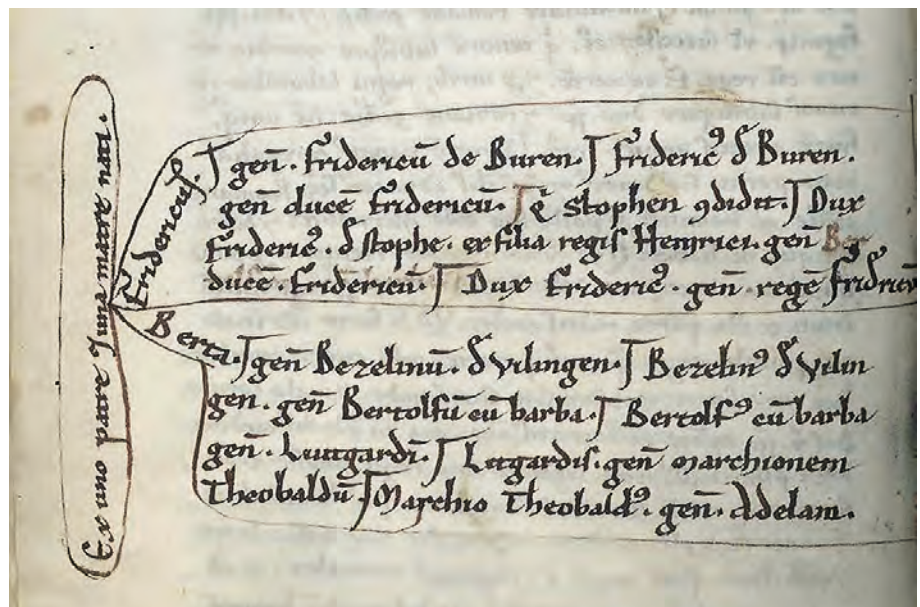 Ex uno patre ⁊ una matre nati.
Fridericus.
⁊ geñ. fridericū de Buren. ⁊ frideric⁹ đ Buren.
geñ ducē fridericū. ⁊ q̄ Stophen ꝯdidit. ⁊ Dux
frideric⁹. đ stophe. ex filia regis Heinrici. geñ
ducē. fridericū. ⁊ Dux frideric⁹. geñ. regē fridricū
Berta.
⁊ geñ Bezelinū. đ vilingen. ⁊ Bezelin⁹ đ vilin
gen. geñ Bertolfū cū barba. ⁊ Bertolf⁹ cū barba
geñ. Luitgardī. ⁊ Litgardis. geñ marchionem
Theobaldū. ⁊ Marchio Theobald⁹. geñ. Adelam.